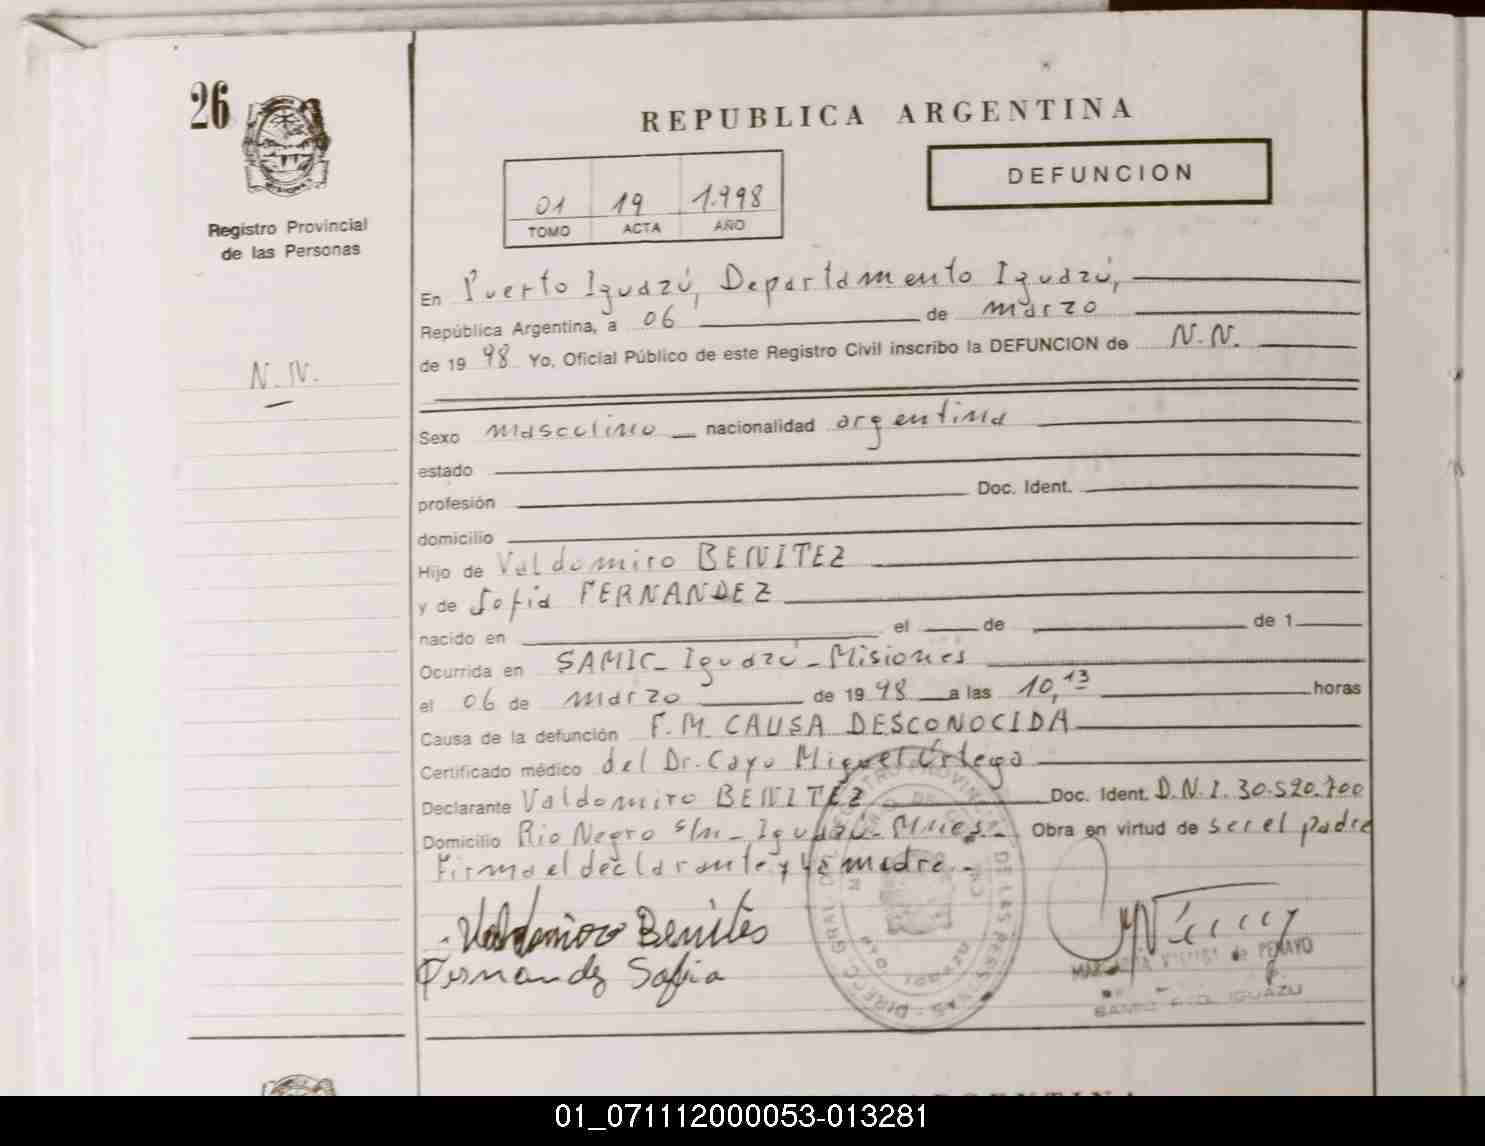 26
REPUBLICA ARGENTINA
DEFUNCION
01 19 1.998
TOMO ACTA AÑO
Registro Provincial
de las Personas
En Puerto Iguazú, Departamento Iguazú,
República Argentina, a 06 de marzo
de 19 98 Yo, Oficial Público de este Registro Civil inscribo la DEFUNCION de N.N.
N.N.
Sexo masculino nacionalidad argentina
estado
profesión Doc. Ident.
domicilio
Hijo de Valdomiro BENITEZ
y de Sofia FERNANDEZ
nacido en el de de 1
Ocurrida en SAMIC - Iguazú - Misiones
el 06 de marzo de 19 98 a las 10,13 horas
Causa de la defunción F.M. CAUSA DESCONOCIDA
Certificado médico del Dr. Cayo Miguel Ortega
Declarante Valdomiro BENITEZ Doc. Ident. D.N.I. 30.520.700
Domicilio Rio Negro s/n - Iguazú - Mnes. Obra en virtud de ser el padre
Firma el declarante y la madre.-
Valdomiro Benites
Fernandez Sofia
DE PENAYO
IGUAZU
REPUBLICA ARGENTINA
01_071112000053-013281